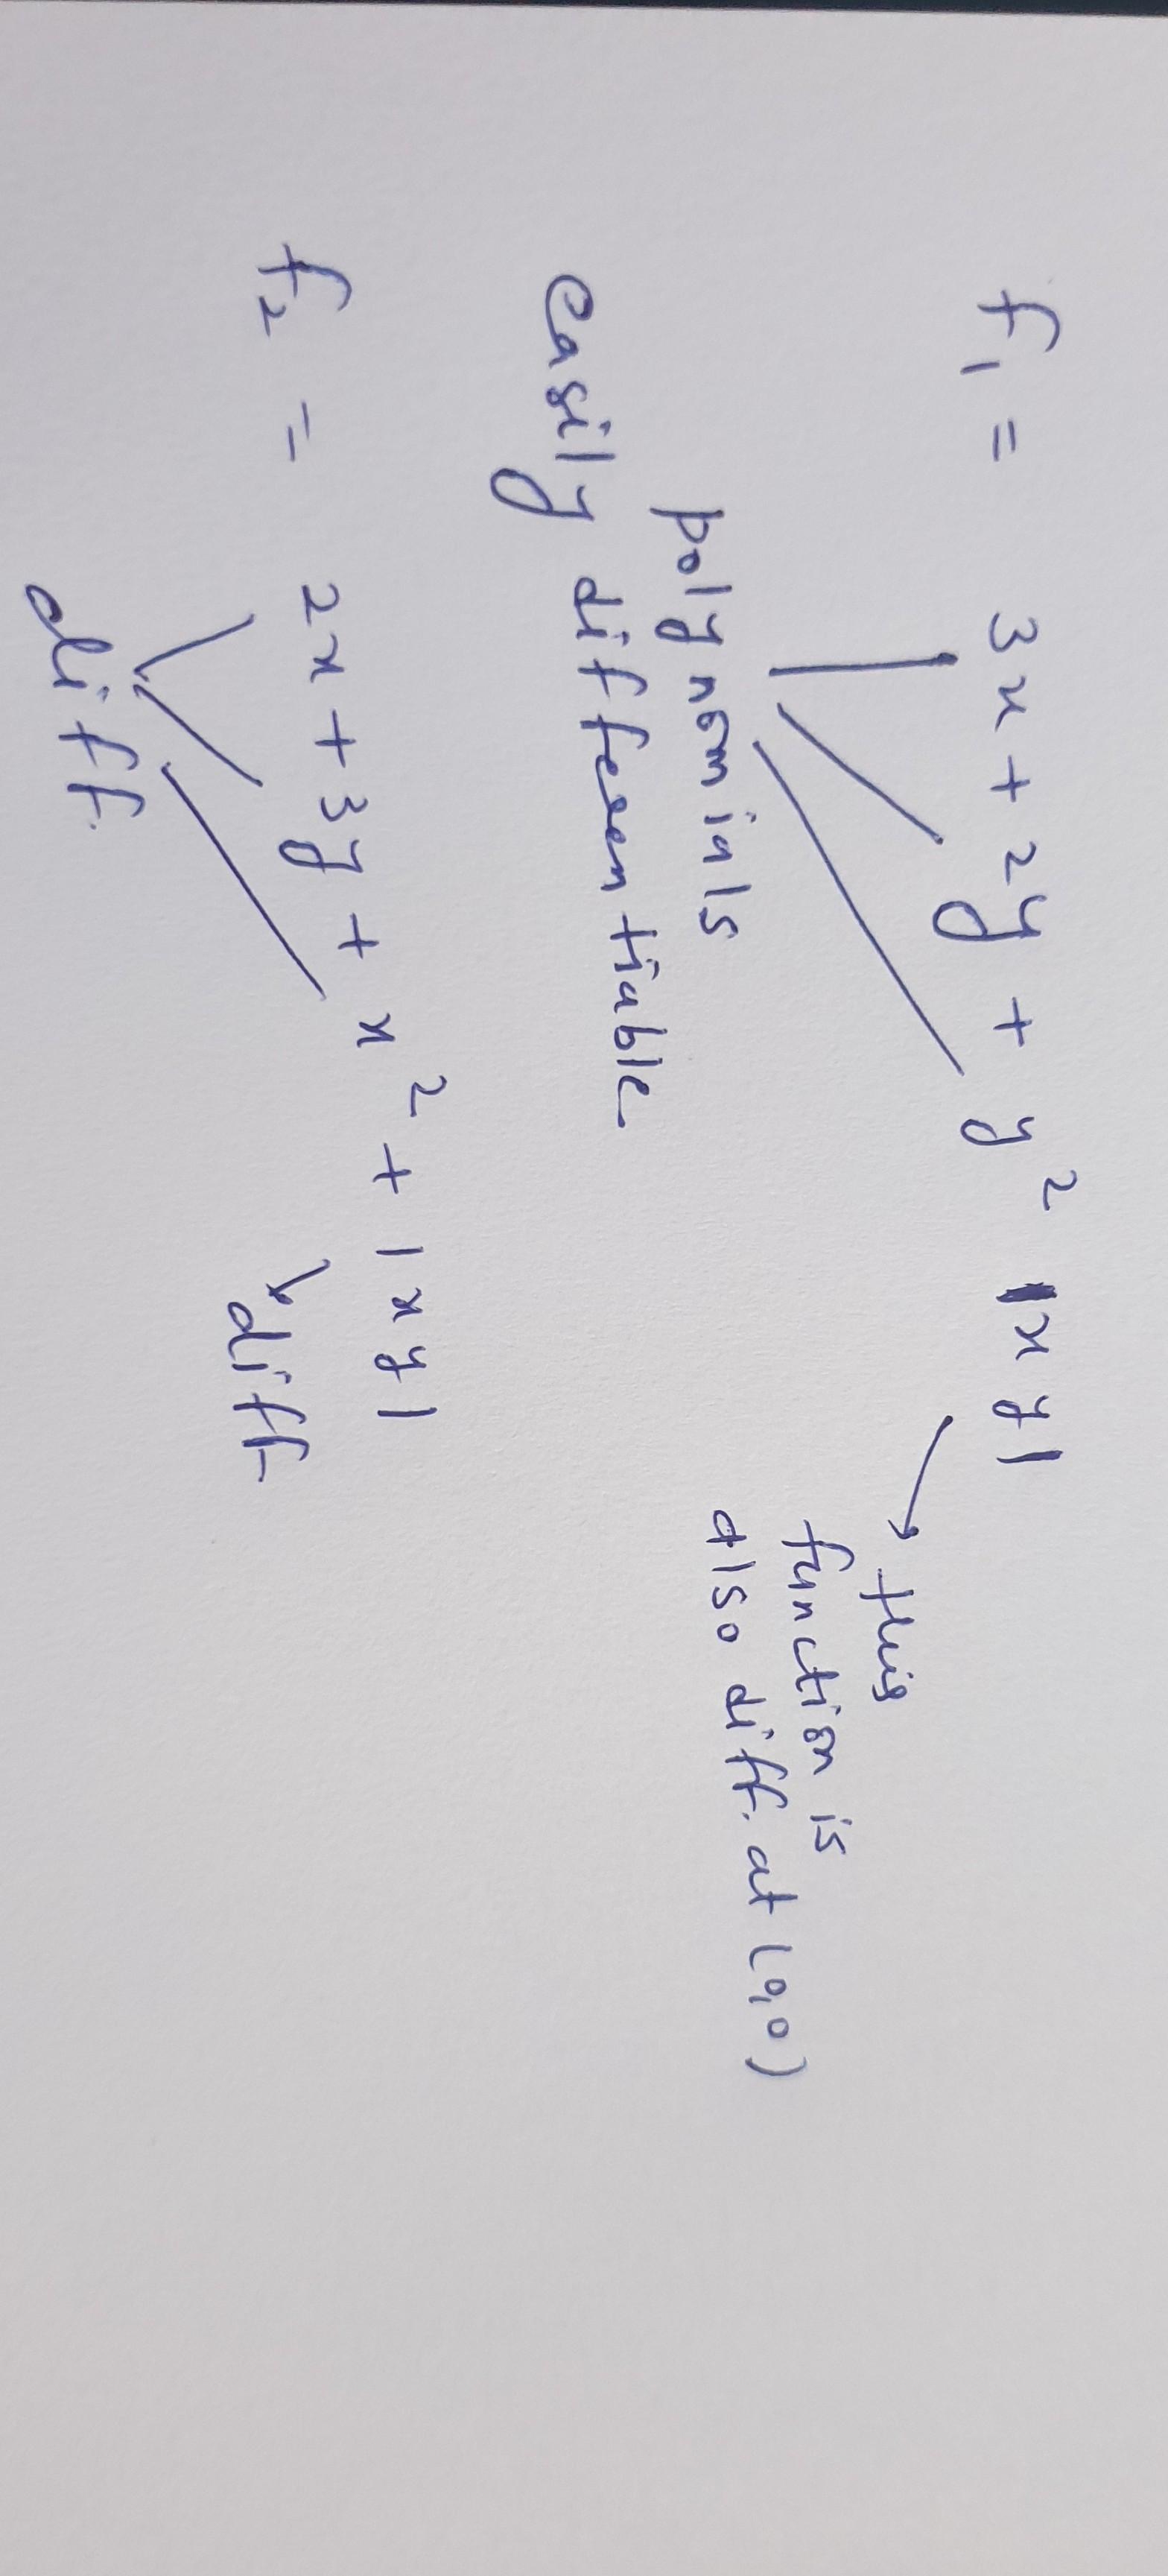 f₁ = 3x + 2y + y² |xy|
this
function is
also diff. at (0,0)
polynomials
easily differentiable
f₂ = 2x + 3y + x² + |xy|
diff.
diff.